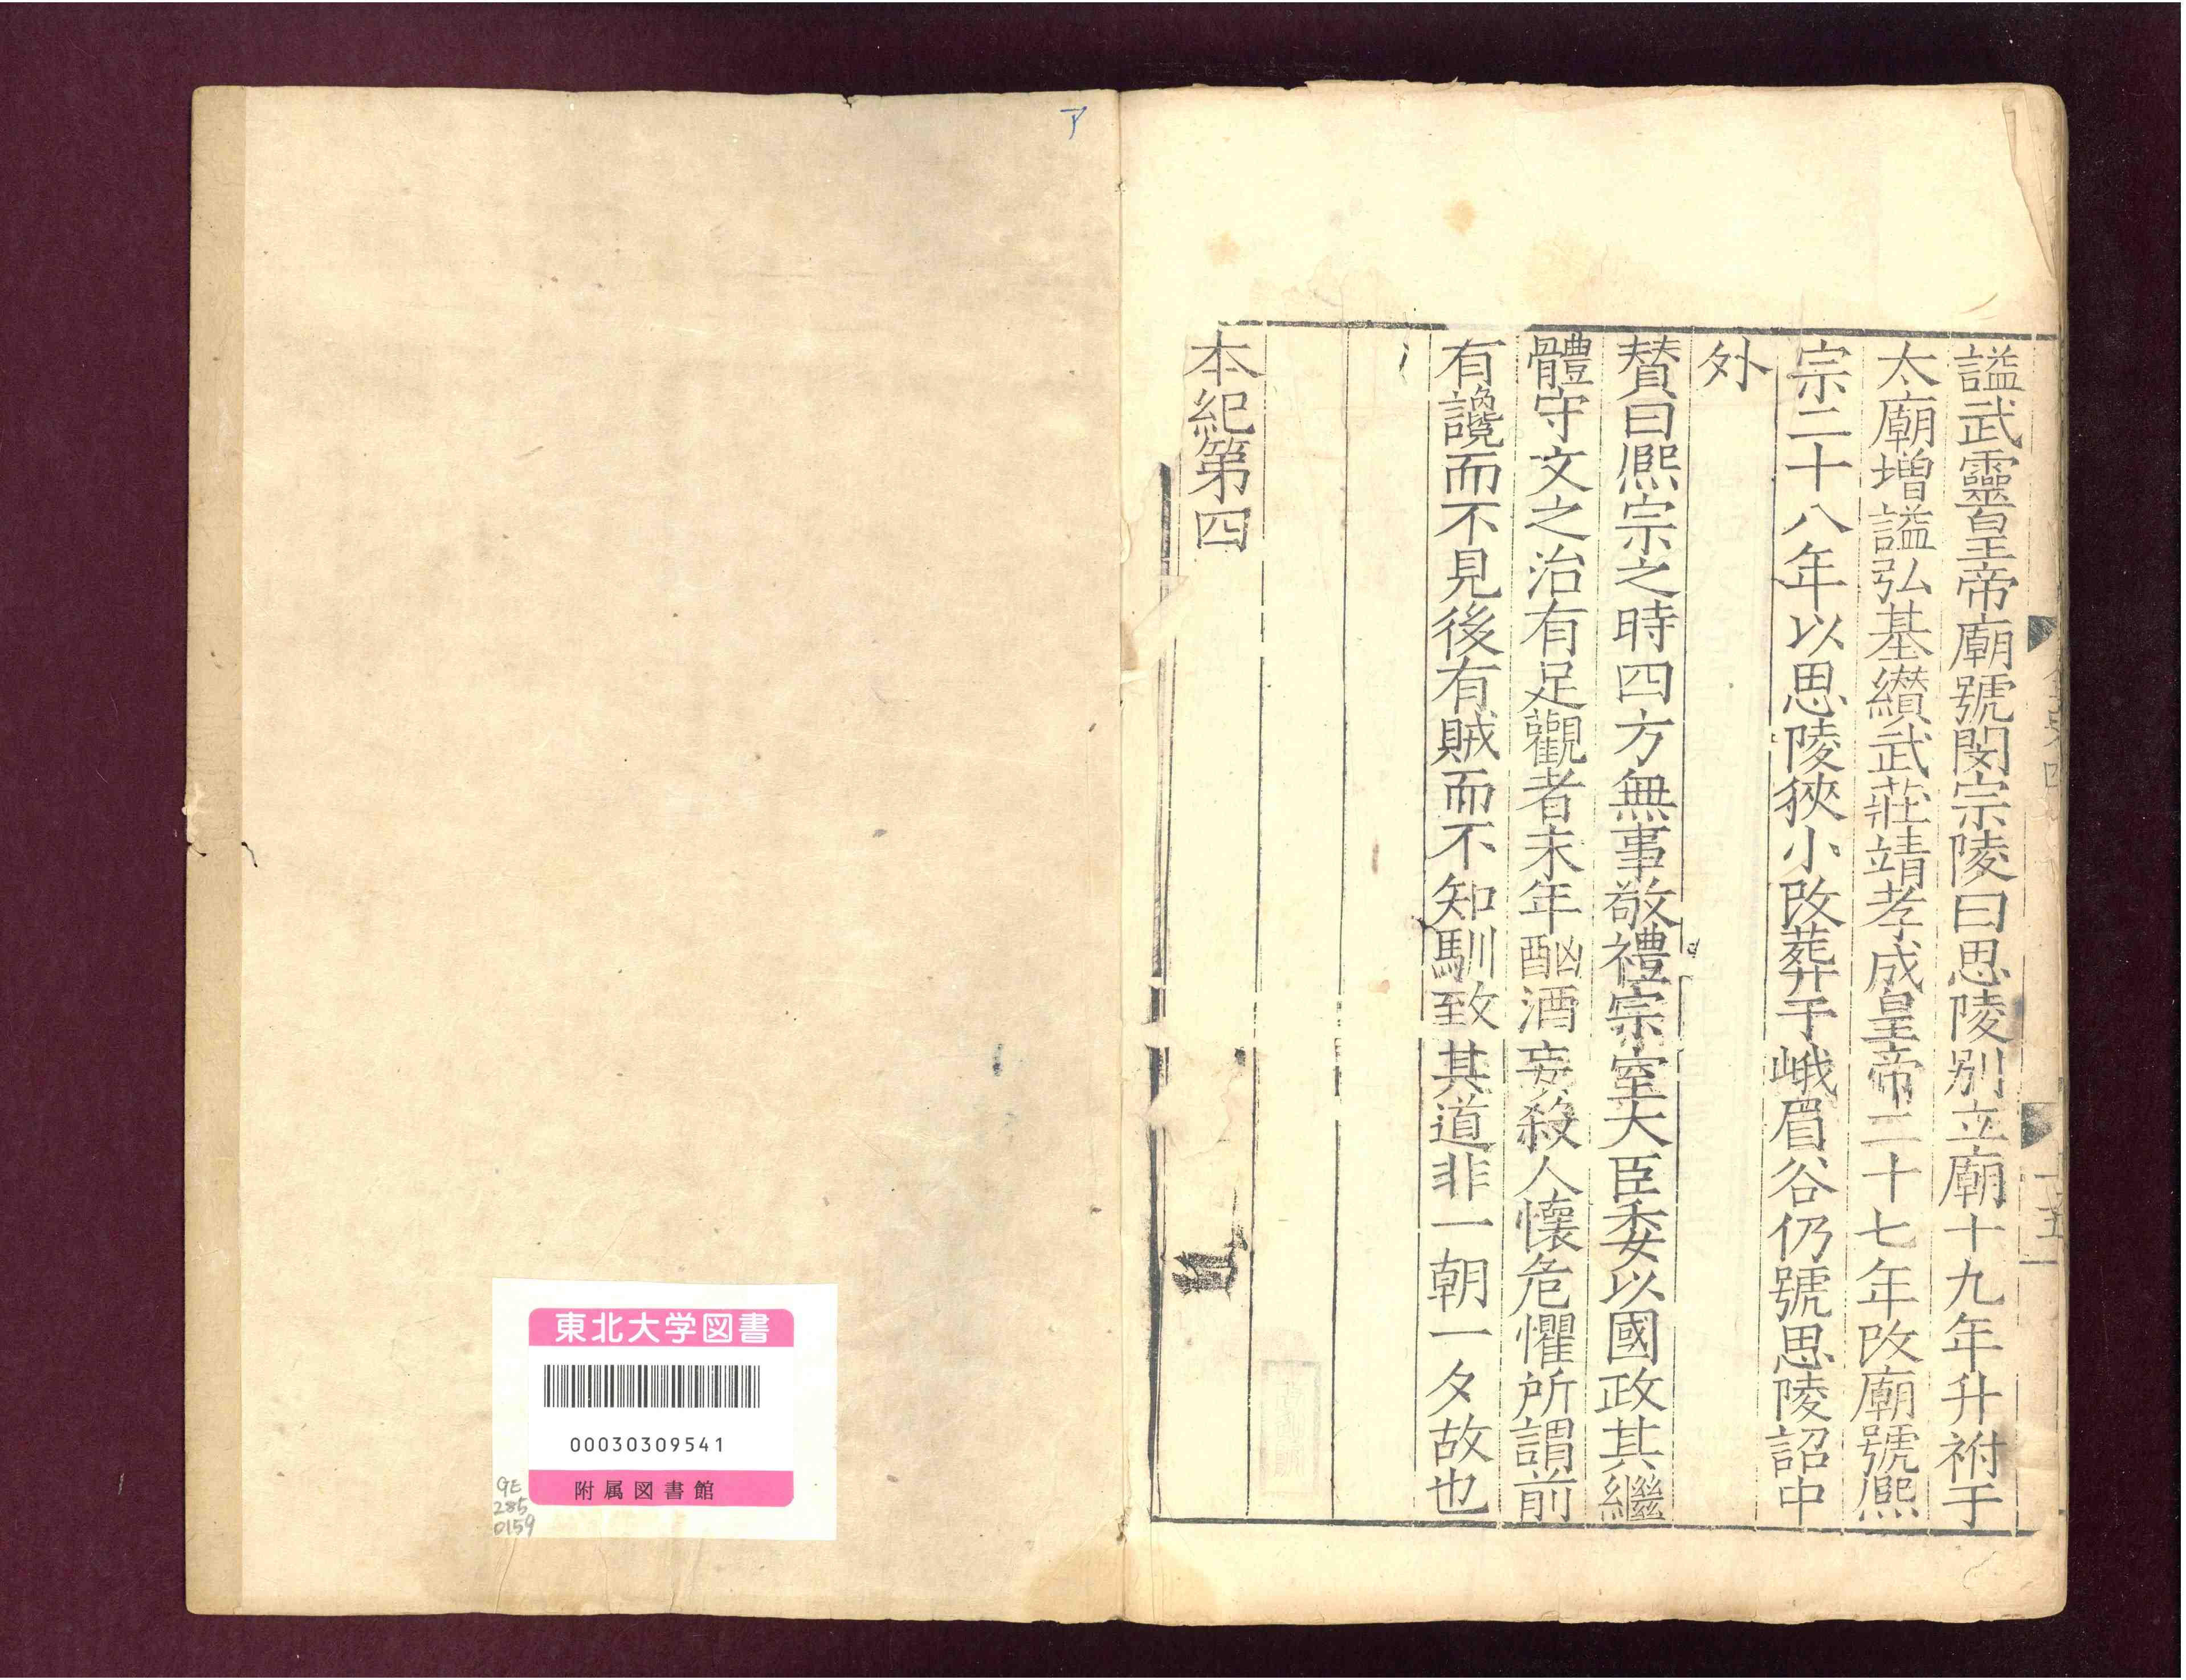 謚武靈皇帝廟號閔宗陵曰思陵別立廟十九年升祔于
太廟增謚弘基纘武莊靖孝成皇帝二十七年改廟號熈
宗二十八年以思陵狹小改葬于峨眉谷仍號思陵詔中
外
賛曰熈宗之時四方無事敬禮宗室大臣委以國政其繼
體守文之治有足觀者末年酗酒妄殺人懷危懼所謂前
有讒而不見後有賊而不知馴致其道非一朝一夕故也
本紀第四
ア
東北大学図書
00030309541
附属図書館
GE
285
0159